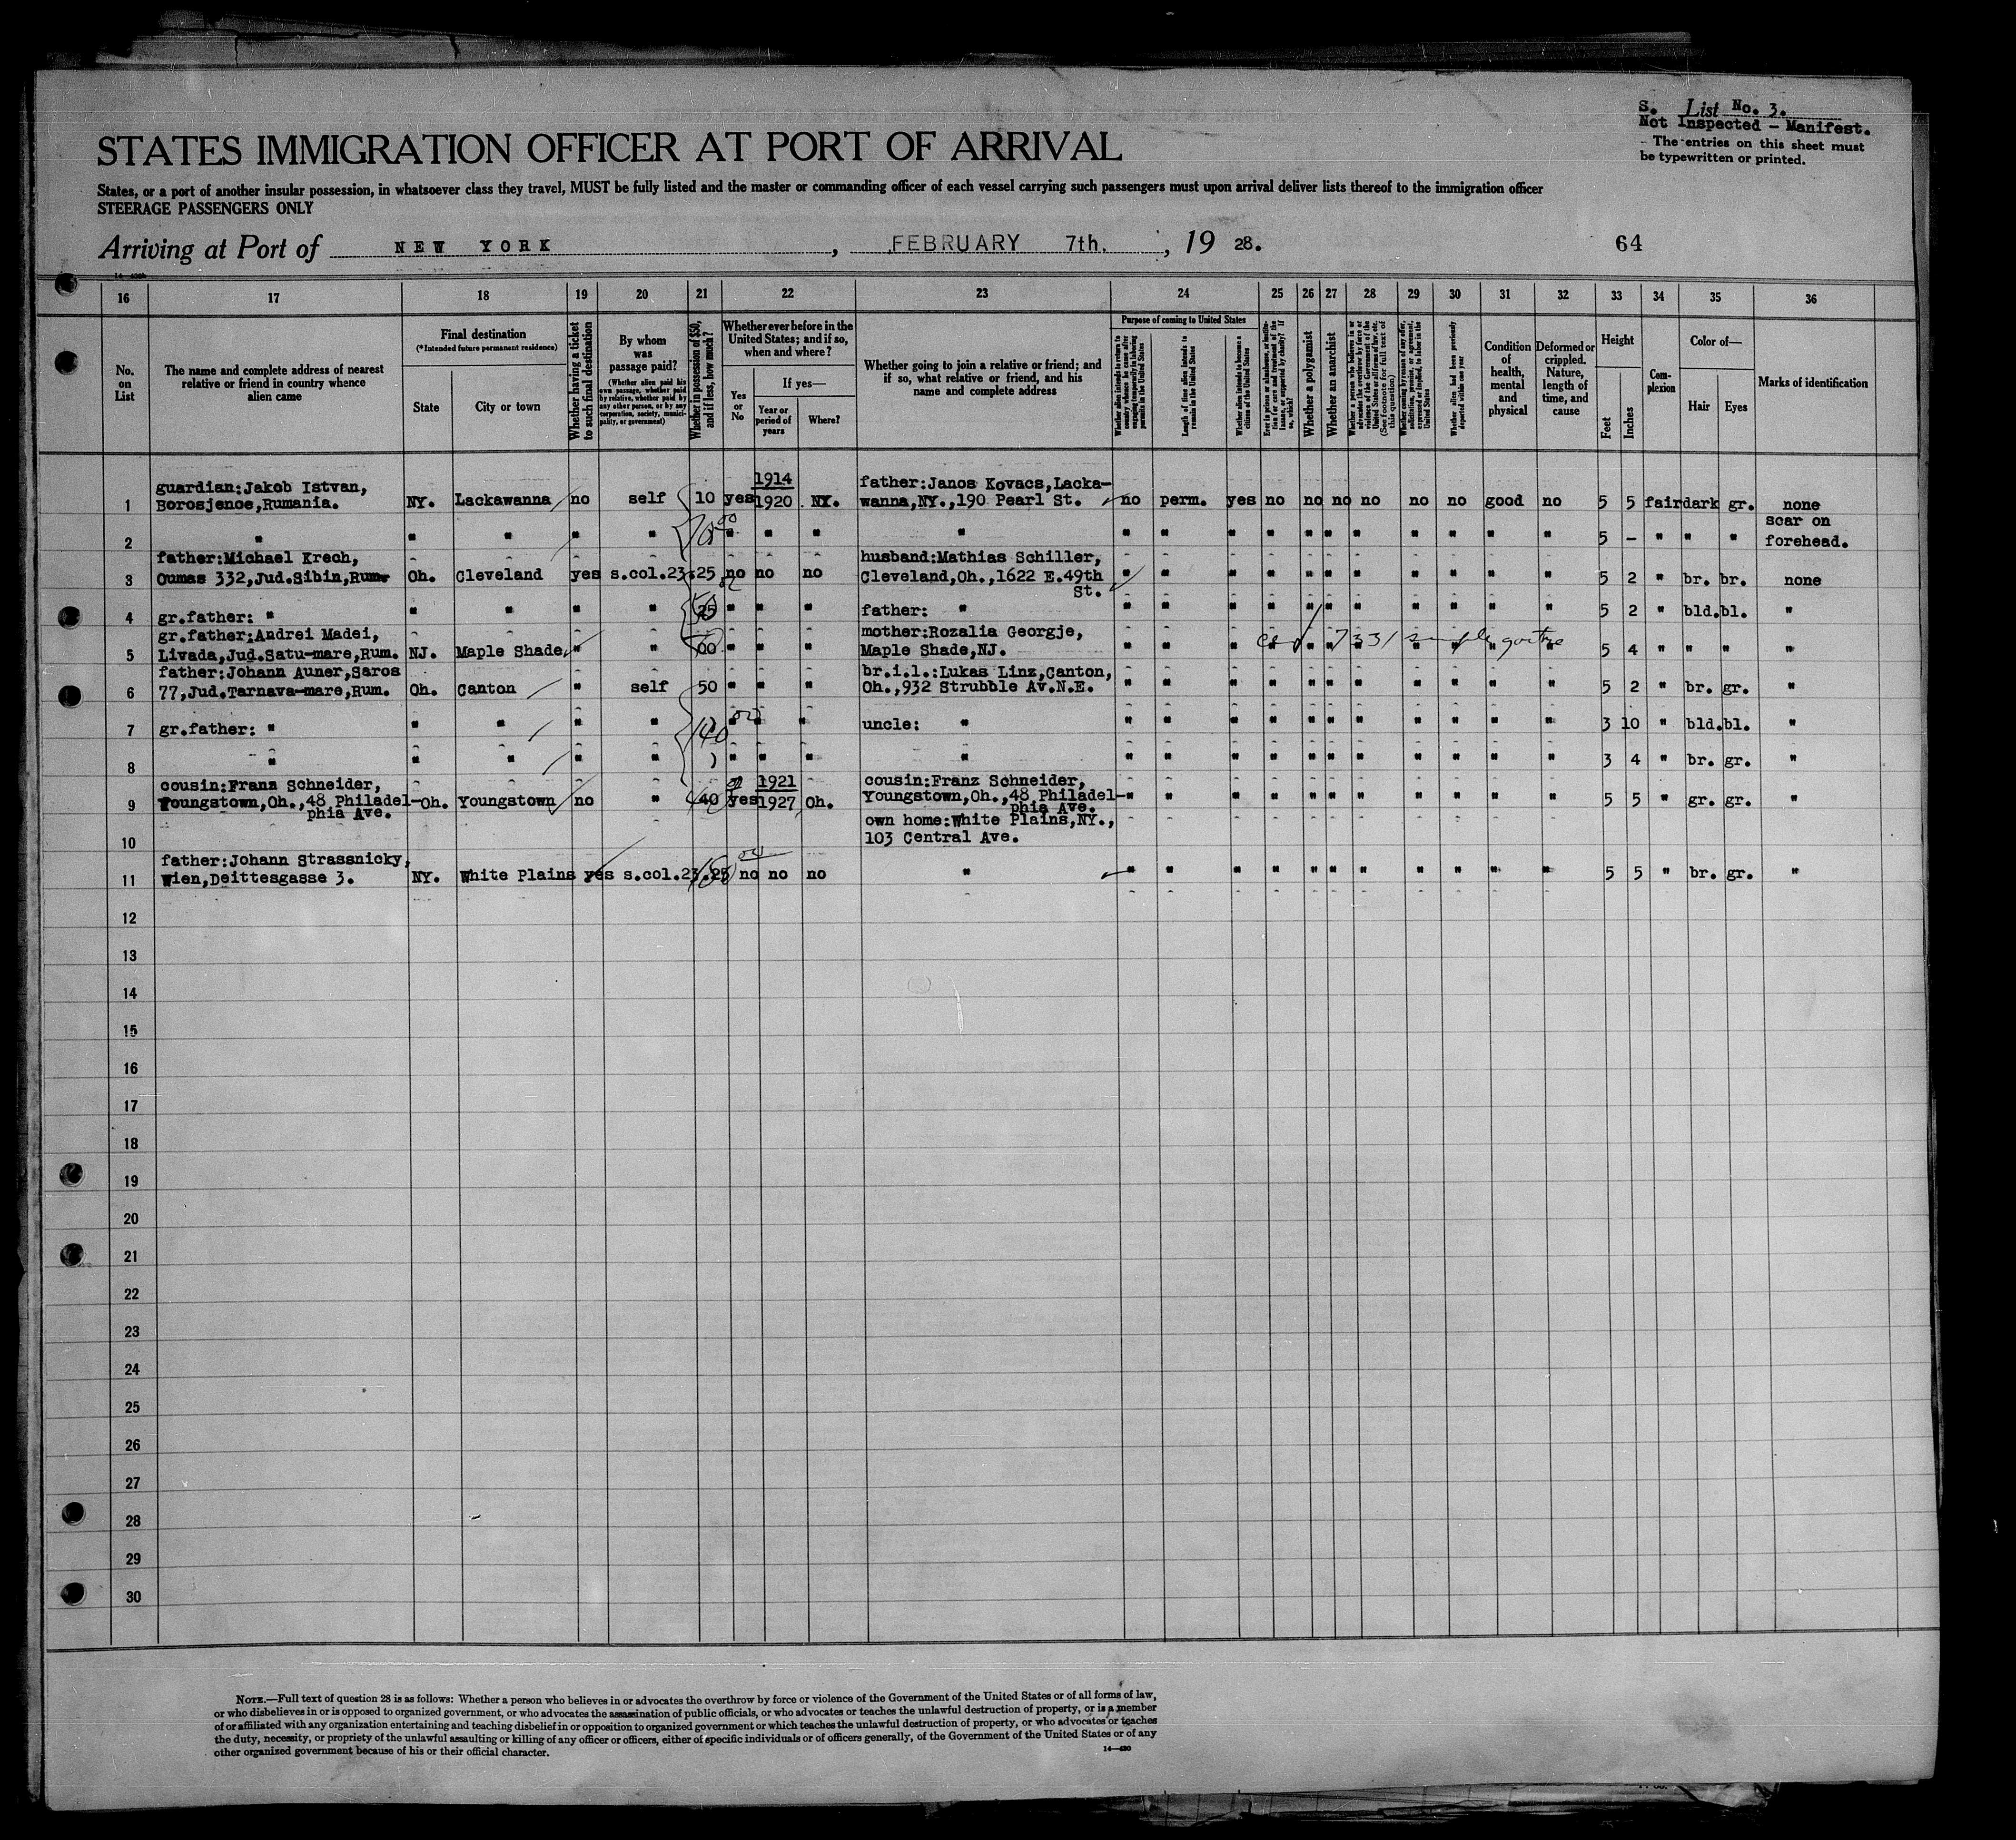 S. List No. 3.
Not Inspected - Manifest.
The entries on this sheet must
be typewritten or printed.
STATES IMMIGRATION OFFICER AT PORT OF ARRIVAL
States, or a port of another insular possession, in whatsoever class they travel, MUST be fully listed and the master or commanding officer of each vessel carrying such passengers must upon arrival deliver lists thereof to the immigration officer
STEERAGE PASSENGERS ONLY
Arriving at Port of NEW YORK, FEBRUARY 7th., 19 28.
64
16 17 18 19 20 21 22 23 24 25 26 27 28 29 30 31 32 33 34 35 36
No. on List
The name and complete address of nearest relative or friend in country whence alien came
Final destination
(*Intended future permanent residence)
State
City or town
Whether having a ticket to such final destination
By whom was passage paid?
(Whether alien paid his own passage, whether paid by relative, whether paid by any other person, or by any corporation, society, municipality, or government)
Whether in possession of $50, and if less, how much?
Whether ever before in the United States; and if so, when and where?
Yes or No
If yes—
Year or period of years
Where?
Whether going to join a relative or friend; and if so, what relative or friend, and his name and complete address
Purpose of coming to United States
Length of time alien intends to remain in the United States
Whether alien intends to become a citizen of the United States
Whether a polygamist
Whether an anarchist
Condition of health, mental and physical
Deformed or crippled. Nature, length of time, and cause
Height
Feet
Inches
Complexion
Color of—
Hair
Eyes
Marks of identification
1 guardian:Jakob Istvan, Borosjenoe,Rumania. NY. Lackawanna no self 10 yes 1914 1920 NY. father:Janos Kovacs,Lackawanna,NY.,190 Pearl St. no perm. yes no no no no no no good no 5 5 fair dark gr. none
2 " " " " " " " " " " " " " " " " " " " " 5 - " " " scar on forehead.
3 father:Michael Krech, Oumas 332,Jud.Sibin,Rum. Oh. Cleveland yes s.col.23. 25 no no no husband:Mathias Schiller, Cleveland,Oh.,1622 E.49th St. " " " " " " " " " " " 5 2 " br. br. none
4 gr.father: " " " " " 25 " " " father: " " " " " " " " " " " " 5 2 " bld. bl. "
5 gr.father:Andrei Madei, Livada,Jud.Satu-mare,Rum. NJ. Maple Shade " " " " " mother:Rozalia Georgje, Maple Shade,NJ. " " " " " " " " " " 7331 simple goitre 5 4 " " " "
6 father:Johann Auner,Saros 77,Jud.Tarnava-mare,Rum. Oh. Canton " self 50 " " " br.i.l.:Lukas Linz,Canton, Oh.,932 Strubble Av.N.E. " " " " " " " " " " " 5 2 " br. gr. "
7 gr.father: " " " " " 140 " " " uncle: " " " " " " " " " " " " 3 10 " bld. bl. "
8 " " " " " " " " " " " " " " " " " " " " 3 4 " br. gr. "
9 cousin:Franz Schneider, Youngstown,Oh.,48 Philadelphia Ave. Oh. Youngstown no " 40 yes 1921 1927 Oh. cousin:Franz Schneider, Youngstown,Oh.,48 Philadelphia Ave. " " " " " " " " " " " 5 5 " gr. gr. "
10 own home:White Plains,NY., 103 Central Ave.
11 father:Johann Strassnicky, Wien,Deittesgasse 3. NY. White Plains yes s.col.23. 25 no no no " " " " " " " " " " " " 5 5 " br. gr. "
12
13
14
15
16
17
18
19
20
21
22
23
24
25
26
27
28
29
30
NOTE.—Full text of question 28 is as follows: Whether a person who believes in or advocates the overthrow by force or violence of the Government of the United States or of all forms of law,
or who disbelieves in or is opposed to organized government, or who advocates the assassination of public officials, or who advocates or teaches the unlawful destruction of property, or is a member
of or affiliated with any organization entertaining and teaching disbelief in or opposition to organized government or which teaches the unlawful destruction of property, or who advocates or teaches
the duty, necessity, or propriety of the unlawful assaulting or killing of any officer or officers, either of specific individuals or of officers generally, of the Government of the United States or of any
other organized government because of his or their official character.
14—430